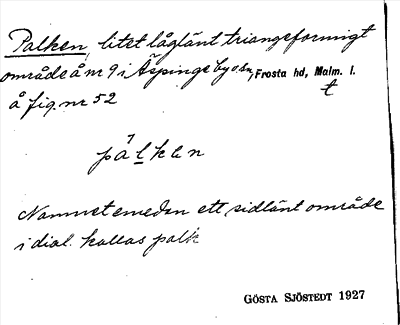 Palken, litet låglänt triangeformigt
område å nr 9 i Äspinge by o. sn, Frosta hd, Malm. l.
å fig. nr 52 t
pálkɛn
Namnet emedan ett sidlänt område
i dial. kallas palk
GÖSTA SJÖSTEDT 1927